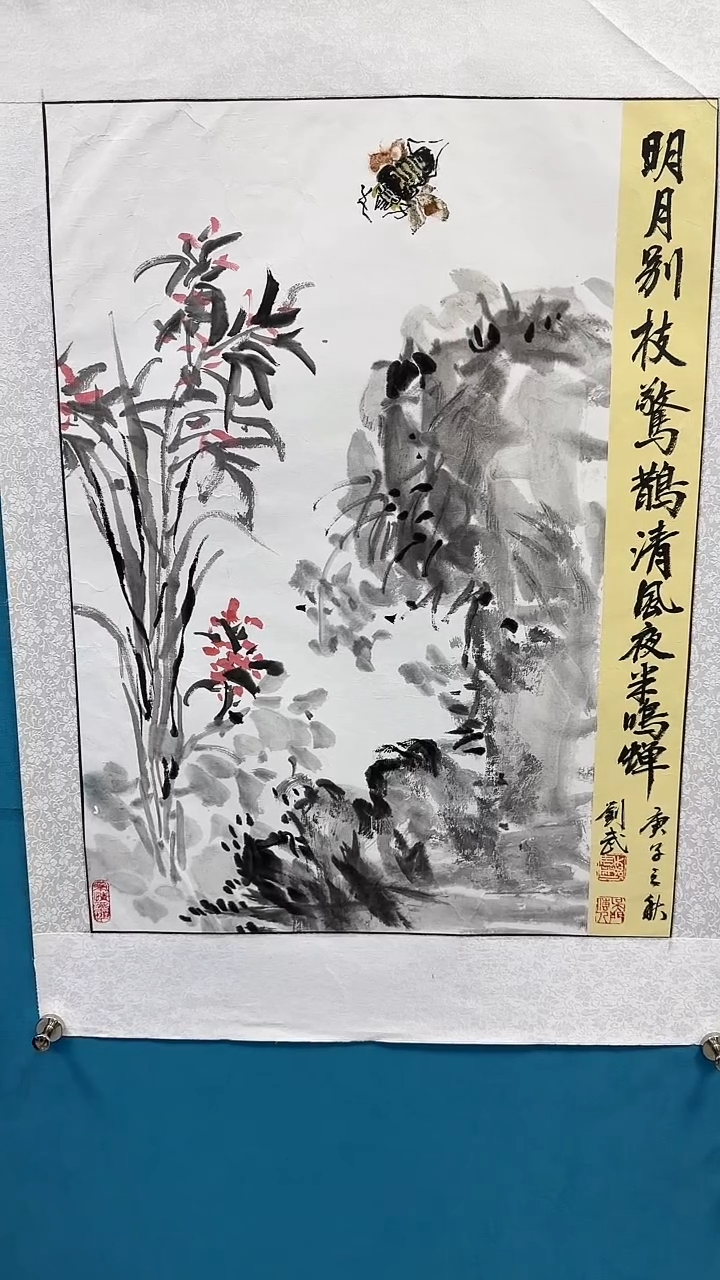 明月别枝驚鵲清風夜半鳴蟬
庚子之秋
劉武